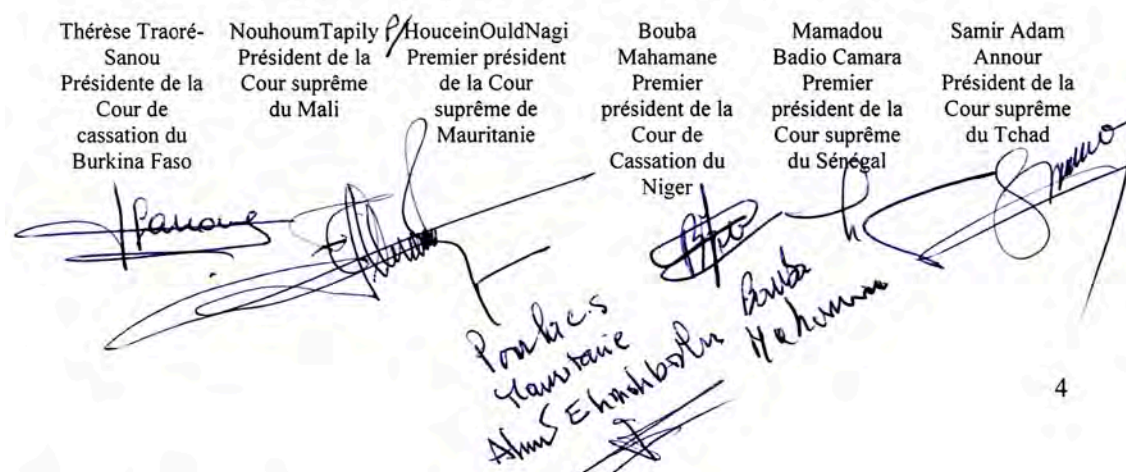 Thérèse Traoré-
Sanou
Présidente de la
Cour de
cassation du
Burkina Faso
NouhoumTapily
Président de la
Cour suprême
du Mali
P/HouceinOuldNagi
Premier président
de la Cour
suprême de
Mauritanie
Bouba
Mahamane
Premier
président de la
Cour de
Cassation du
Niger
Mamadou
Badio Camara
Premier
président de la
Cour suprême
du Sénégal
Samir Adam
Annour
Président de la
Cour suprême
du Tchad
Pour la C.S
Mauritanie
Bouba
4